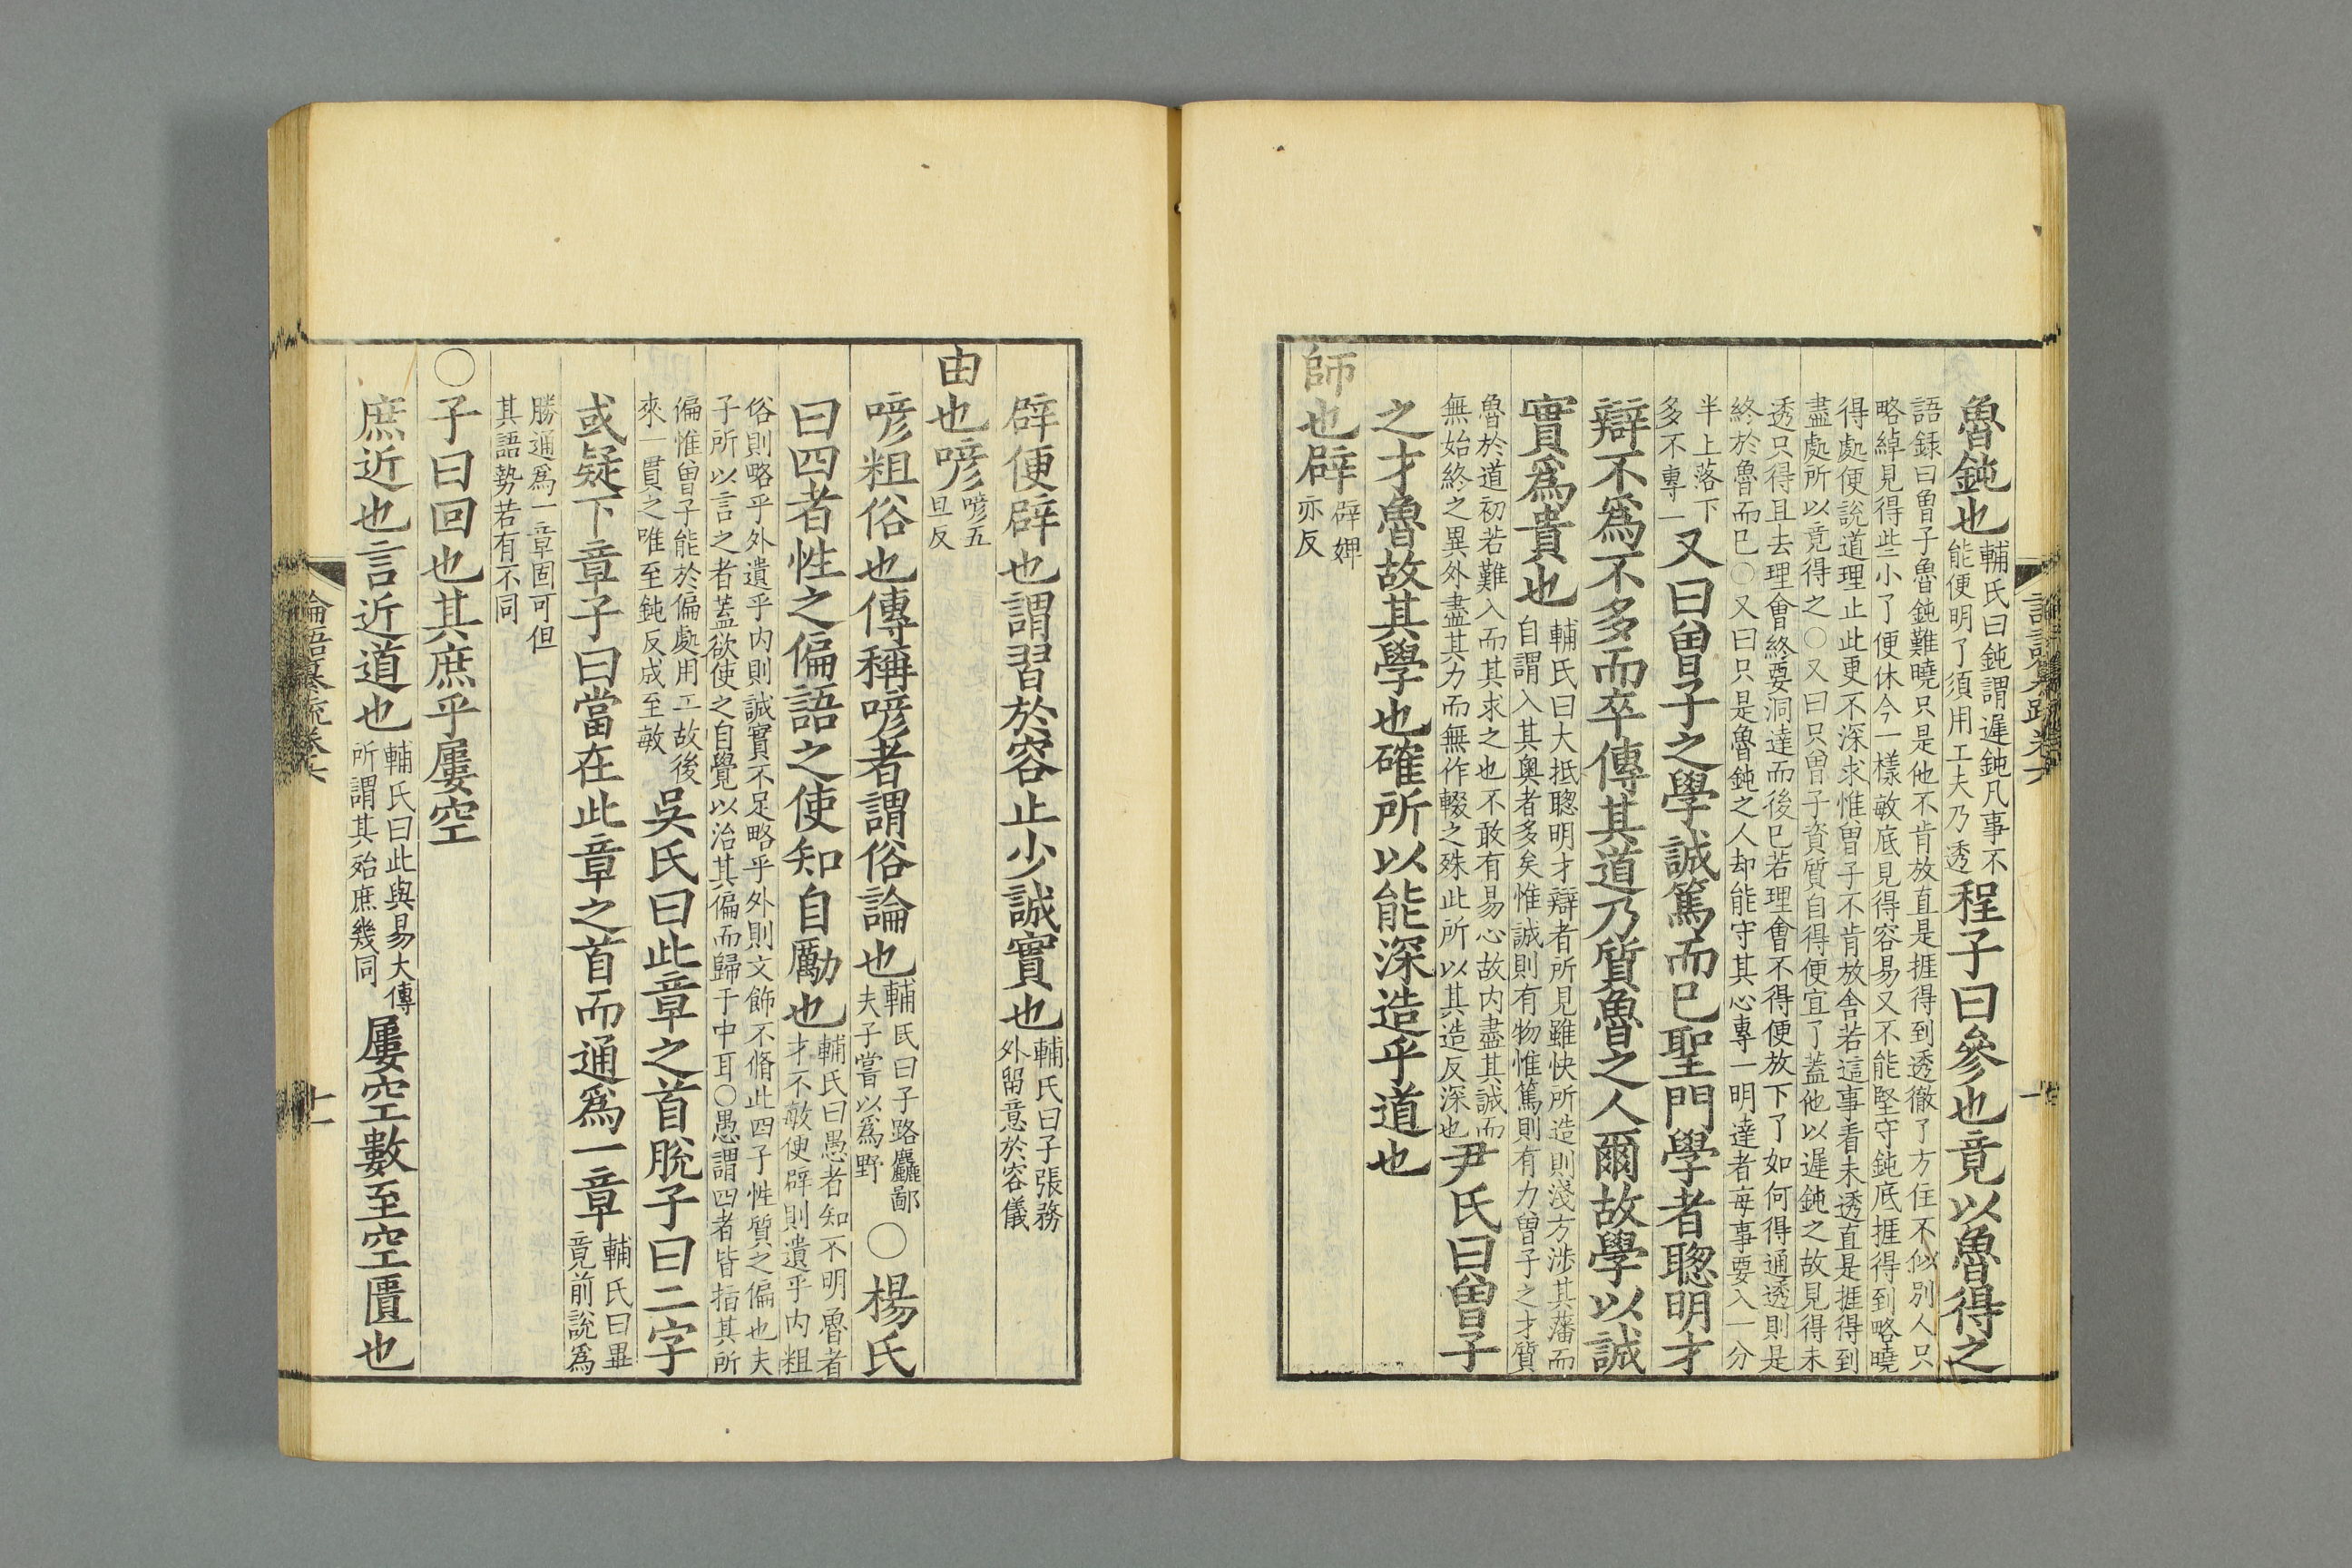 魯鈍也輔氏曰鈍謂遲鈍凡事不能便明了須用工夫乃透程子曰參也竟以魯得之
語録曰曾子魯鈍難曉只是他不肯放直是捱得到透徹了方住不似別人只
略綽見得些小了便休今一樣敏底見得容易又不能堅守鈍底捱得到略曉
得處便說道理止此更不深求惟曾子不肯放舍若這事看未透直是捱得到
盡處所以竟得之○又曰只曾子資質自得便宜了蓋他以遲鈍之故見得未
透只得且去理會終要洞達而後已若理會不得便放下了如何得通透則是
終於魯而已○又曰只是魯鈍之人却能守其心專一明達者每事要入一分
半上落下多不專一又曰曾子之學誠篤而已聖門學者聰明才
辯不爲不多而卒傳其道乃質魯之人爾故學以誠
實爲貴也輔氏曰大抵聰明才辯者所見雖快所造則淺方涉其藩而自謂入其奧者多矣惟誠則有物惟篤則有力曾子之才質
魯於道初若難入而其求之也不敢有易心故内盡其誠而無始終之異外盡其力而無作輟之殊此所以其造反深也尹氏曰曾子
之才魯故其學也確所以能深造乎道也
師也辟辟婢亦反
辟便辟也謂習於容止少誠實也輔氏曰子張務外留意於容儀
由也喭喭五旦反
喭粗俗也傳稱喭者謂俗論也輔氏曰子路麤鄙夫子嘗以爲野○楊氏
曰四者性之偏語之使知自勵也輔氏曰愚者知不明魯者才不敏便辟則遺乎内粗
俗則略乎外遺乎内則誠實不足略乎外則文飾不脩此四子性質之偏也夫
子所以言之者蓋欲使之自覺以治其偏而歸于中耳○愚謂四者皆指其所
偏惟曾子能於偏處用工故後來一貫之唯至鈍反成至敏吳氏曰此章之首脫子曰二字
或疑下章子曰當在此章之首而通爲一章輔氏曰畢竟前說爲
勝通爲一章固可但其語勢若有不同
○子曰回也其庶乎屢空
庶近也言近道也輔氏曰此與易大傳所謂其殆庶幾同屢空數至空匱也
論語纂疏卷六
十一